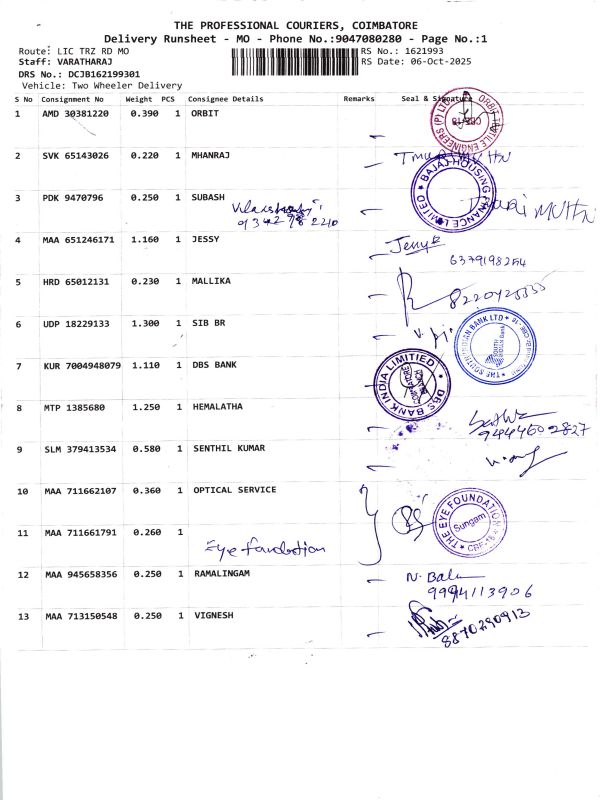 THE PROFESSIONAL COURIERS, COIMBATORE
Delivery Runsheet - MO - Phone No.:9047080280 - Page No.:1
Route: LIC TRZ RD MO RS No.: 1621993
Staff: VARATHARAJ RS Date: 06-Oct-2025
DRS No.: DCJB162199301
Vehicle: Two Wheeler Delivery
S No Consignment No Weight PCS Consignee Details Remarks Seal & Signature
1 AMD 30381220 0.390 1 ORBIT
2 SVK 65143026 0.220 1 MHANRAJ
BAJAJ HOUSING FINANCE LIMITED
3 PDK 9470796 0.250 1 SUBASH
4 MAA 651246171 1.160 1 JESSY Jessy
6379198254
5 HRD 65012131 0.230 1 MALLIKA
6 UDP 18229133 1.300 1 SIB BR
THE SOUTH INDIAN BANK LTD
7 KUR 7004948079 1.110 1 DBS BANK
DBS BANK INDIA LIMITIED
8 MTP 1385680 1.250 1 HEMALATHA
9444602827
9 SLM 379413534 0.580 1 SENTHIL KUMAR
10 MAA 711662107 0.360 1 OPTICAL SERVICE
THE EYE FOUNDATION
Sungam
CBE-18
11 MAA 711661791 0.260 1
Eye foundation
12 MAA 945658356 0.250 1 RAMALINGAM N. Bala
9994113906
13 MAA 713150548 0.250 1 VIGNESH
8870290913